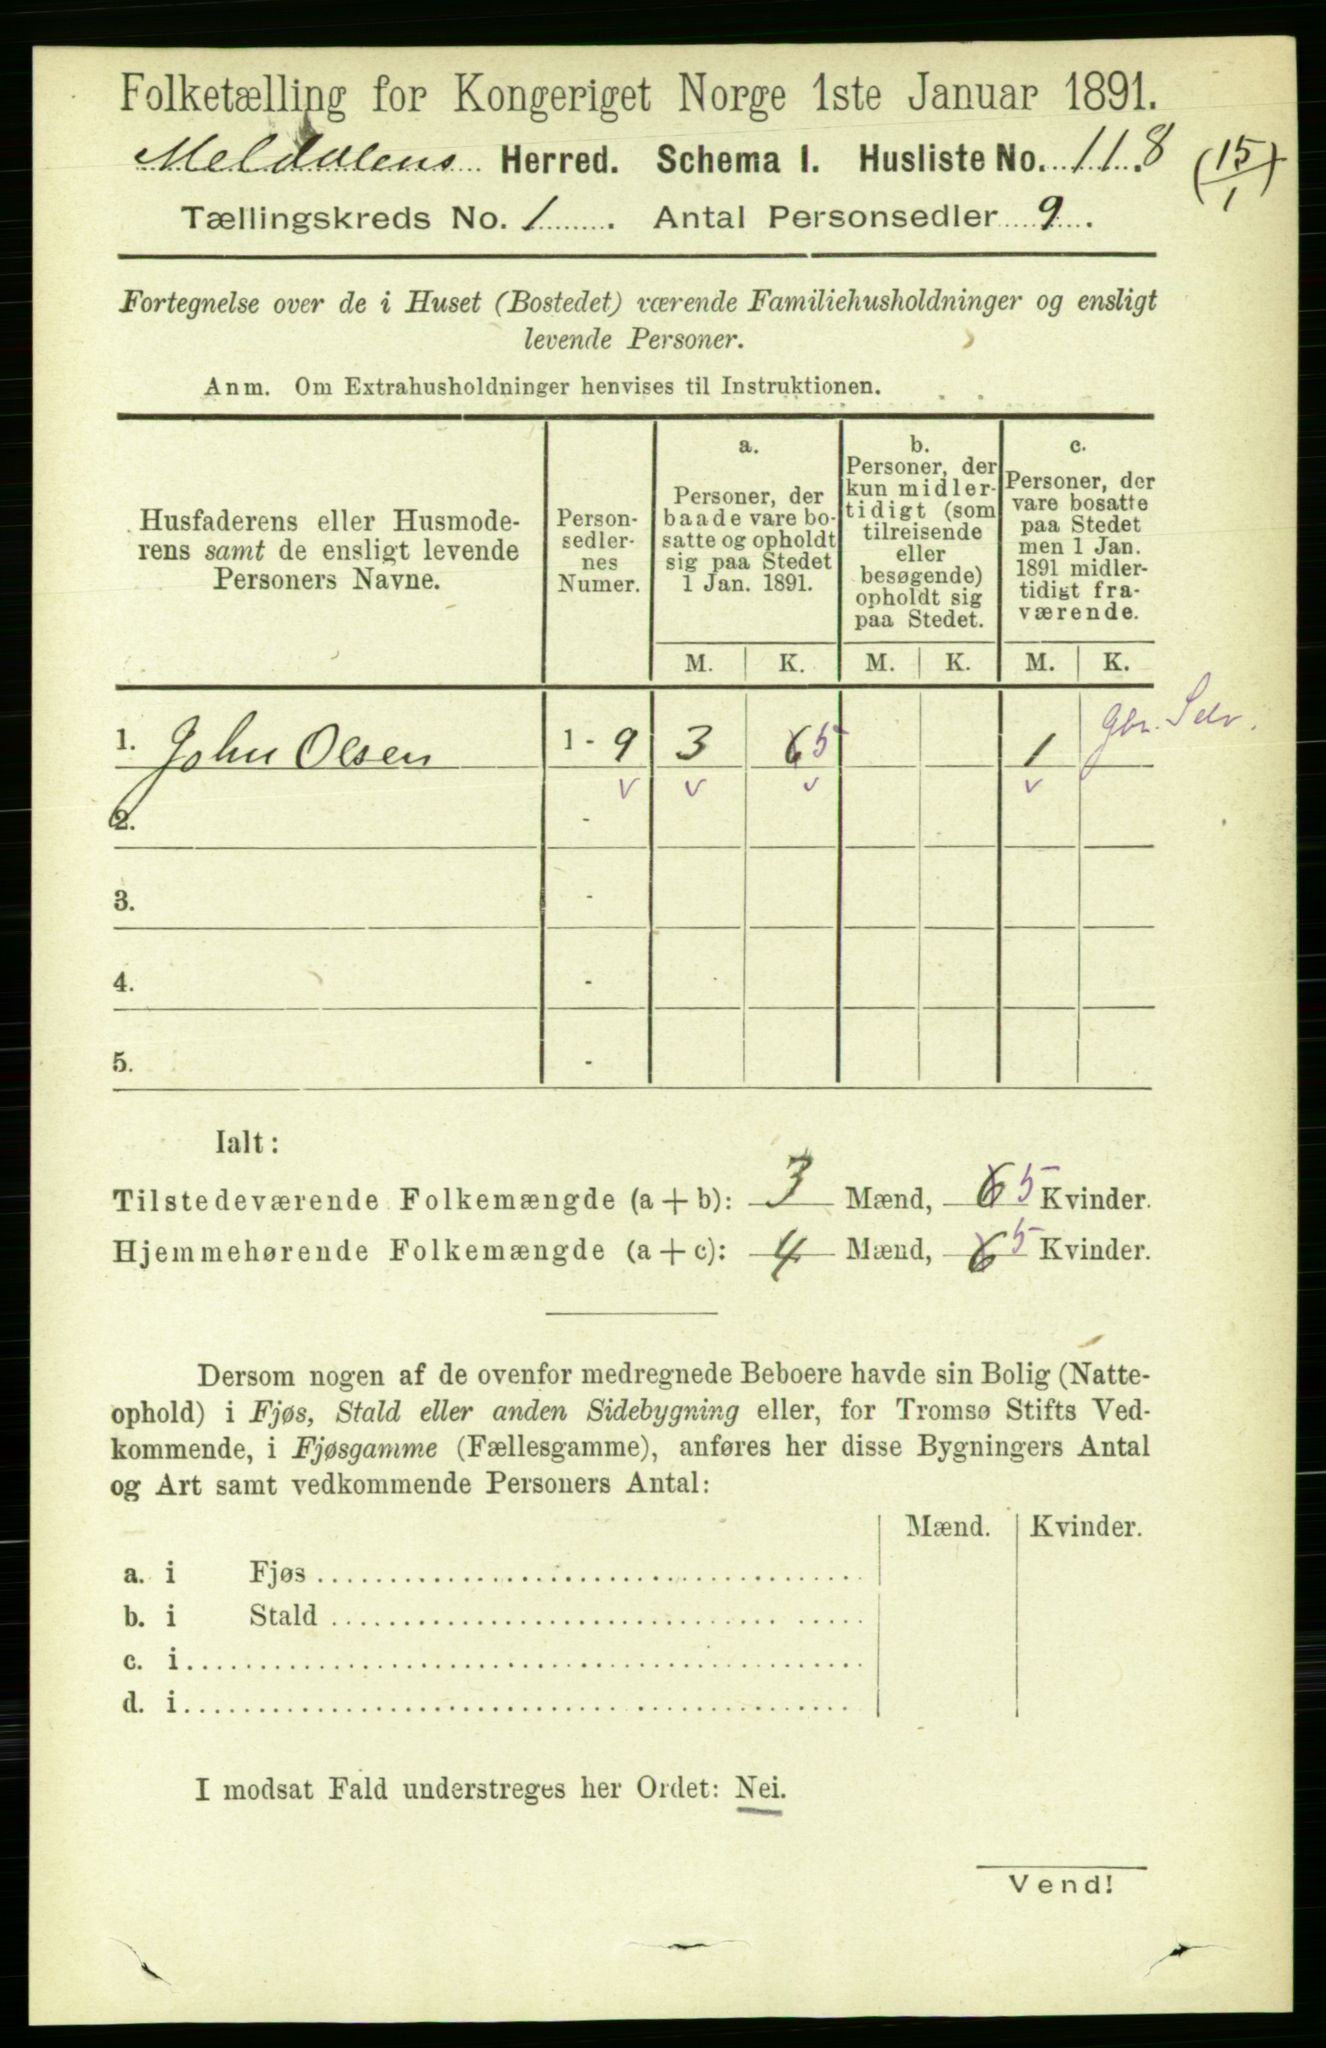 Folketælling for Kongeriget Norge 1ste Januar 1891.
Meldalens Herred. Schema 1. Husliste No. 118 (15/1)
Tællingskreds No. 1. Antal Personsedler 9.
Fortegnelse over de i Huset (Bostedet) værende Familiehusholdninger og ensligt
levende Personer.
Anm. Om Extrahusholdninger henvises til Instruktionen.
Husfaderens eller Husmode-
rens samt de ensligt levende
Personers Navne.
Person-
sedler-
nes
Numer.
a.
Personer, der
baade vare bo-
satte og opholdt
sig paa Stedet
1 Jan. 1891.
b.
Personer, der
kun midler-
tidigt (som
tilreisende
eller
besøgende)
opholdt sig
paa Stedet.
c.
Personer, der
vare bosatte
paa Stedet
men 1 Jan.
1891 midler-
tidigt fra-
værende.
M. K. M. K. M. K.
1. John Olsen 1 - 9 3 6 5 1
v v v v
2. -
3. -
4. -
5. -
Ialt:
Tilstedeværende Folkemængde (a + b): 3 Mænd, 6 5 Kvinder.
Hjemmehørende Folkemængde (a + c): 4 Mænd, 6 5 Kvinder.
Dersom nogen af de ovenfor medregnede Beboere havde sin Bolig (Natte-
ophold) i Fjøs, Stald eller anden Sidebygning eller, for Tromsø Stifts Ved-
kommende, i Fjøsgamme (Fællesgamme), anføres her disse Bygningers Antal
og Art samt vedkommende Personers Antal:
Mænd. Kvinder.
a. i Fjøs
b. i Stald
c. i
d. i
I modsat Fald understreges her Ordet: Nei.
Vend!